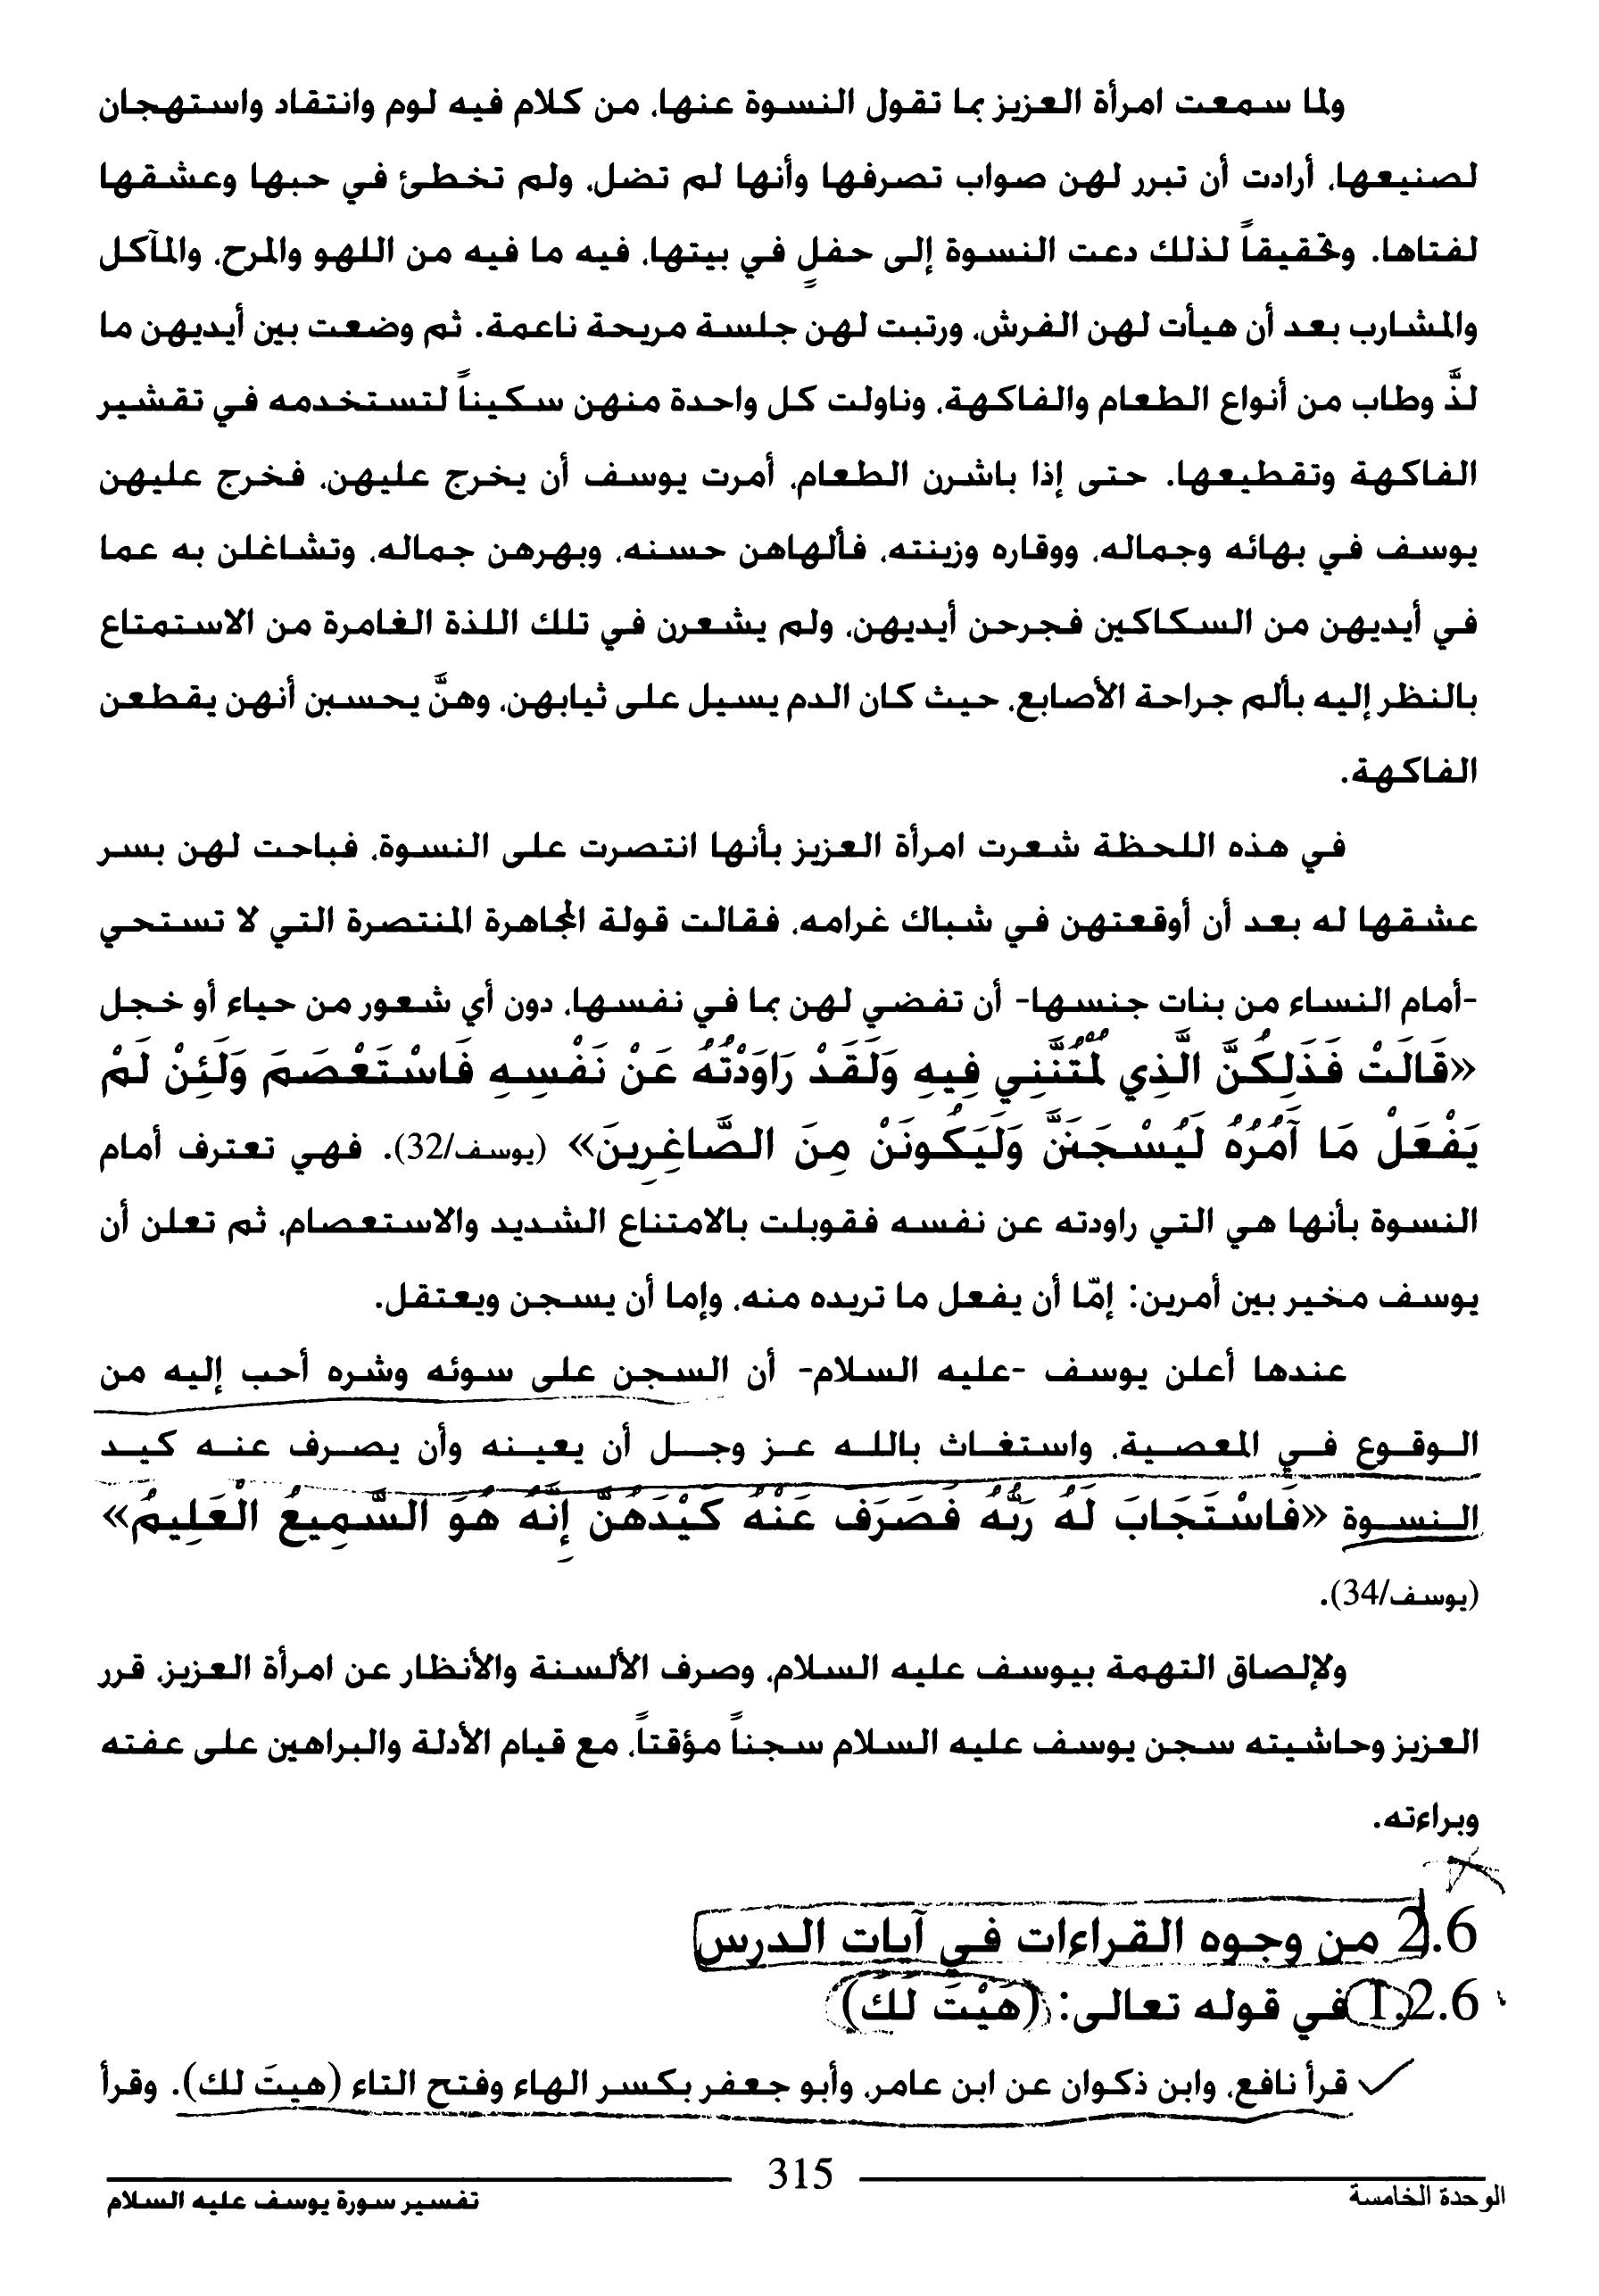 ولما سمعت امرأة العزيز بما تقول النسوة عنها، من كلام فيه لوم وانتقاد واستهجان
لصنيعها، أرادت أن تبرر لهن صواب تصرفها وأنها لم تضل، ولم تخطئ في حبها وعشقها
لفتاها. وتحقيقاً لذلك دعت النسوة إلى حفلٍ في بيتها، فيه ما فيه من اللهو والمرح، والمآكل
والمشارب بعد أن هيأت لهن الفرش، ورتبت لهن جلسة مريحة ناعمة. ثم وضعت بين أيديهن ما
لذَّ وطاب من أنواع الطعام والفاكهة، وناولت كل واحدة منهن سكيناً لتستخدمه في تقشير
الفاكهة وتقطيعها. حتى إذا باشرن الطعام، أمرت يوسف أن يخرج عليهن، فخرج عليهن
يوسف في بهائه وجماله، ووقاره وزينته، فألهاهن حسنه، وبهرهن جماله، وتشاغلن به عما
في أيديهن من السكاكين فجرحن أيديهن، ولم يشعرن في تلك اللذة الغامرة من الاستمتاع
بالنظر إليه بألم جراحة الأصابع، حيث كان الدم يسيل على ثيابهن، وهنَّ يحسبن أنهن يقطعن
الفاكهة.
في هذه اللحظة شعرت امرأة العزيز بأنها انتصرت على النسوة، فباحت لهن بسر
عشقها له بعد أن أوقعتهن في شباك غرامه، فقالت قولة المجاهرة المنتصرة التي لا تستحي
-أمام النساء من بنات جنسها- أن تفضي لهن بما في نفسها، دون أي شعور من حياء أو خجل
«قَالَتْ فَذَلِكُنَّ الَّذِي لُمْتُنَّنِي فِيهِ وَلَقَدْ رَاوَدْتُهُ عَنْ نَفْسِهِ فَاسْتَعْصَمَ وَلَئِنْ لَمْ
يَفْعَلْ مَا آمُرُهُ لَيُسْجَنَنَّ وَلَيَكُونَنْ مِنَ الصَّاغِرِينَ» (يوسف/32). فهي تعترف أمام
النسوة بأنها هي التي راودته عن نفسه فقوبلت بالامتناع الشديد والاستعصام، ثم تعلن أن
يوسف مخير بين أمرين: إمّا أن يفعل ما تريده منه، وإما أن يسجن ويعتقل.
عندها أعلن يوسف -عليه السلام- أن السجن على سوئه وشره أحب إليه من
الوقوع في المعصية، واستغاث بالله عز وجل أن يعينه وأن يصرف عنه كيد
النسوة «فَاسْتَجَابَ لَهُ رَبُّهُ فَصَرَفَ عَنْهُ كَيْدَهُنَّ إِنَّهُ هُوَ السَّمِيعُ الْعَلِيمُ»
(يوسف/34).
ولإلصاق التهمة بيوسف عليه السلام، وصرف الألسنة والأنظار عن امرأة العزيز، قرر
العزيز وحاشيته سجن يوسف عليه السلام سجناً مؤقتاً، مع قيام الأدلة والبراهين على عفته
وبراءته.
2.6 من وجوه القراءات في آيات الدرس
1.2.6 في قوله تعالى: (هَيْتَ لَكَ)
قرأ نافع، وابن ذكوان عن ابن عامر، وأبو جعفر بكسر الهاء وفتح التاء (هيتَ لك). وقرأ
315
الوحدة الخامسة
تفسير سورة يوسف عليه السلام